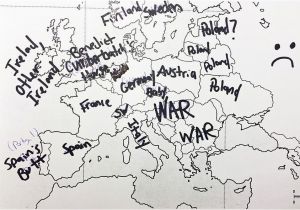 Finland
Sweden
Ireland,
Other
Ireland
Benedict
Cumberbatch
House
Poland?
Poland
Poland
Poland
Germany
Austria
Baby
France
Italy
WAR
WAR
Spain's
Butt
Spain